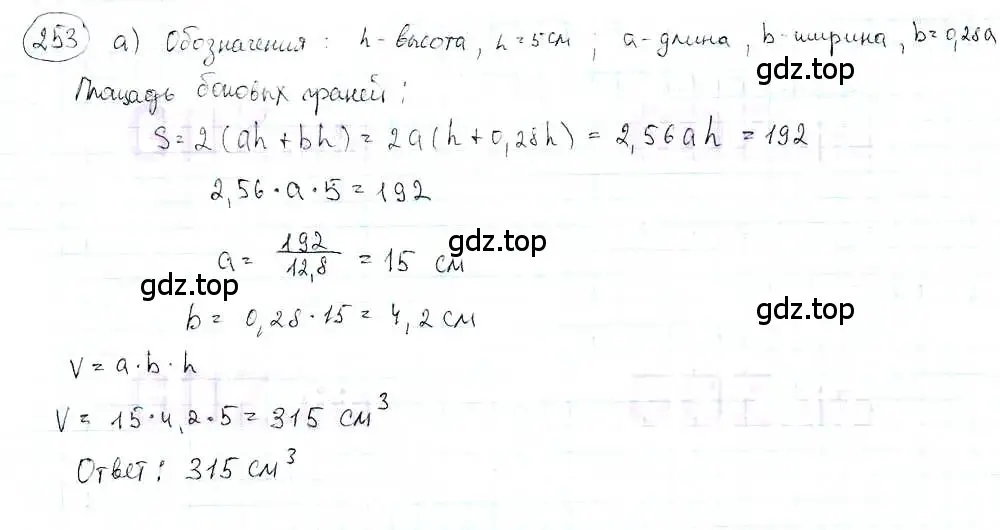 253 а) Обозначения: h-высота, h=5см; a-длина, b-ширина, b=0,28a
gdz.top
Площадь боковых граней:
S=2(ah+bh)=2a(h+0,28h)=2,56ah=192
2,56·a·5=192
gdz.top
a=192/12,8=15 см
gdz.top
b=0,28·15=4,2см
gdz.top
V=a·b·h
V=15·4,2·5=315 см³
Ответ: 315см³